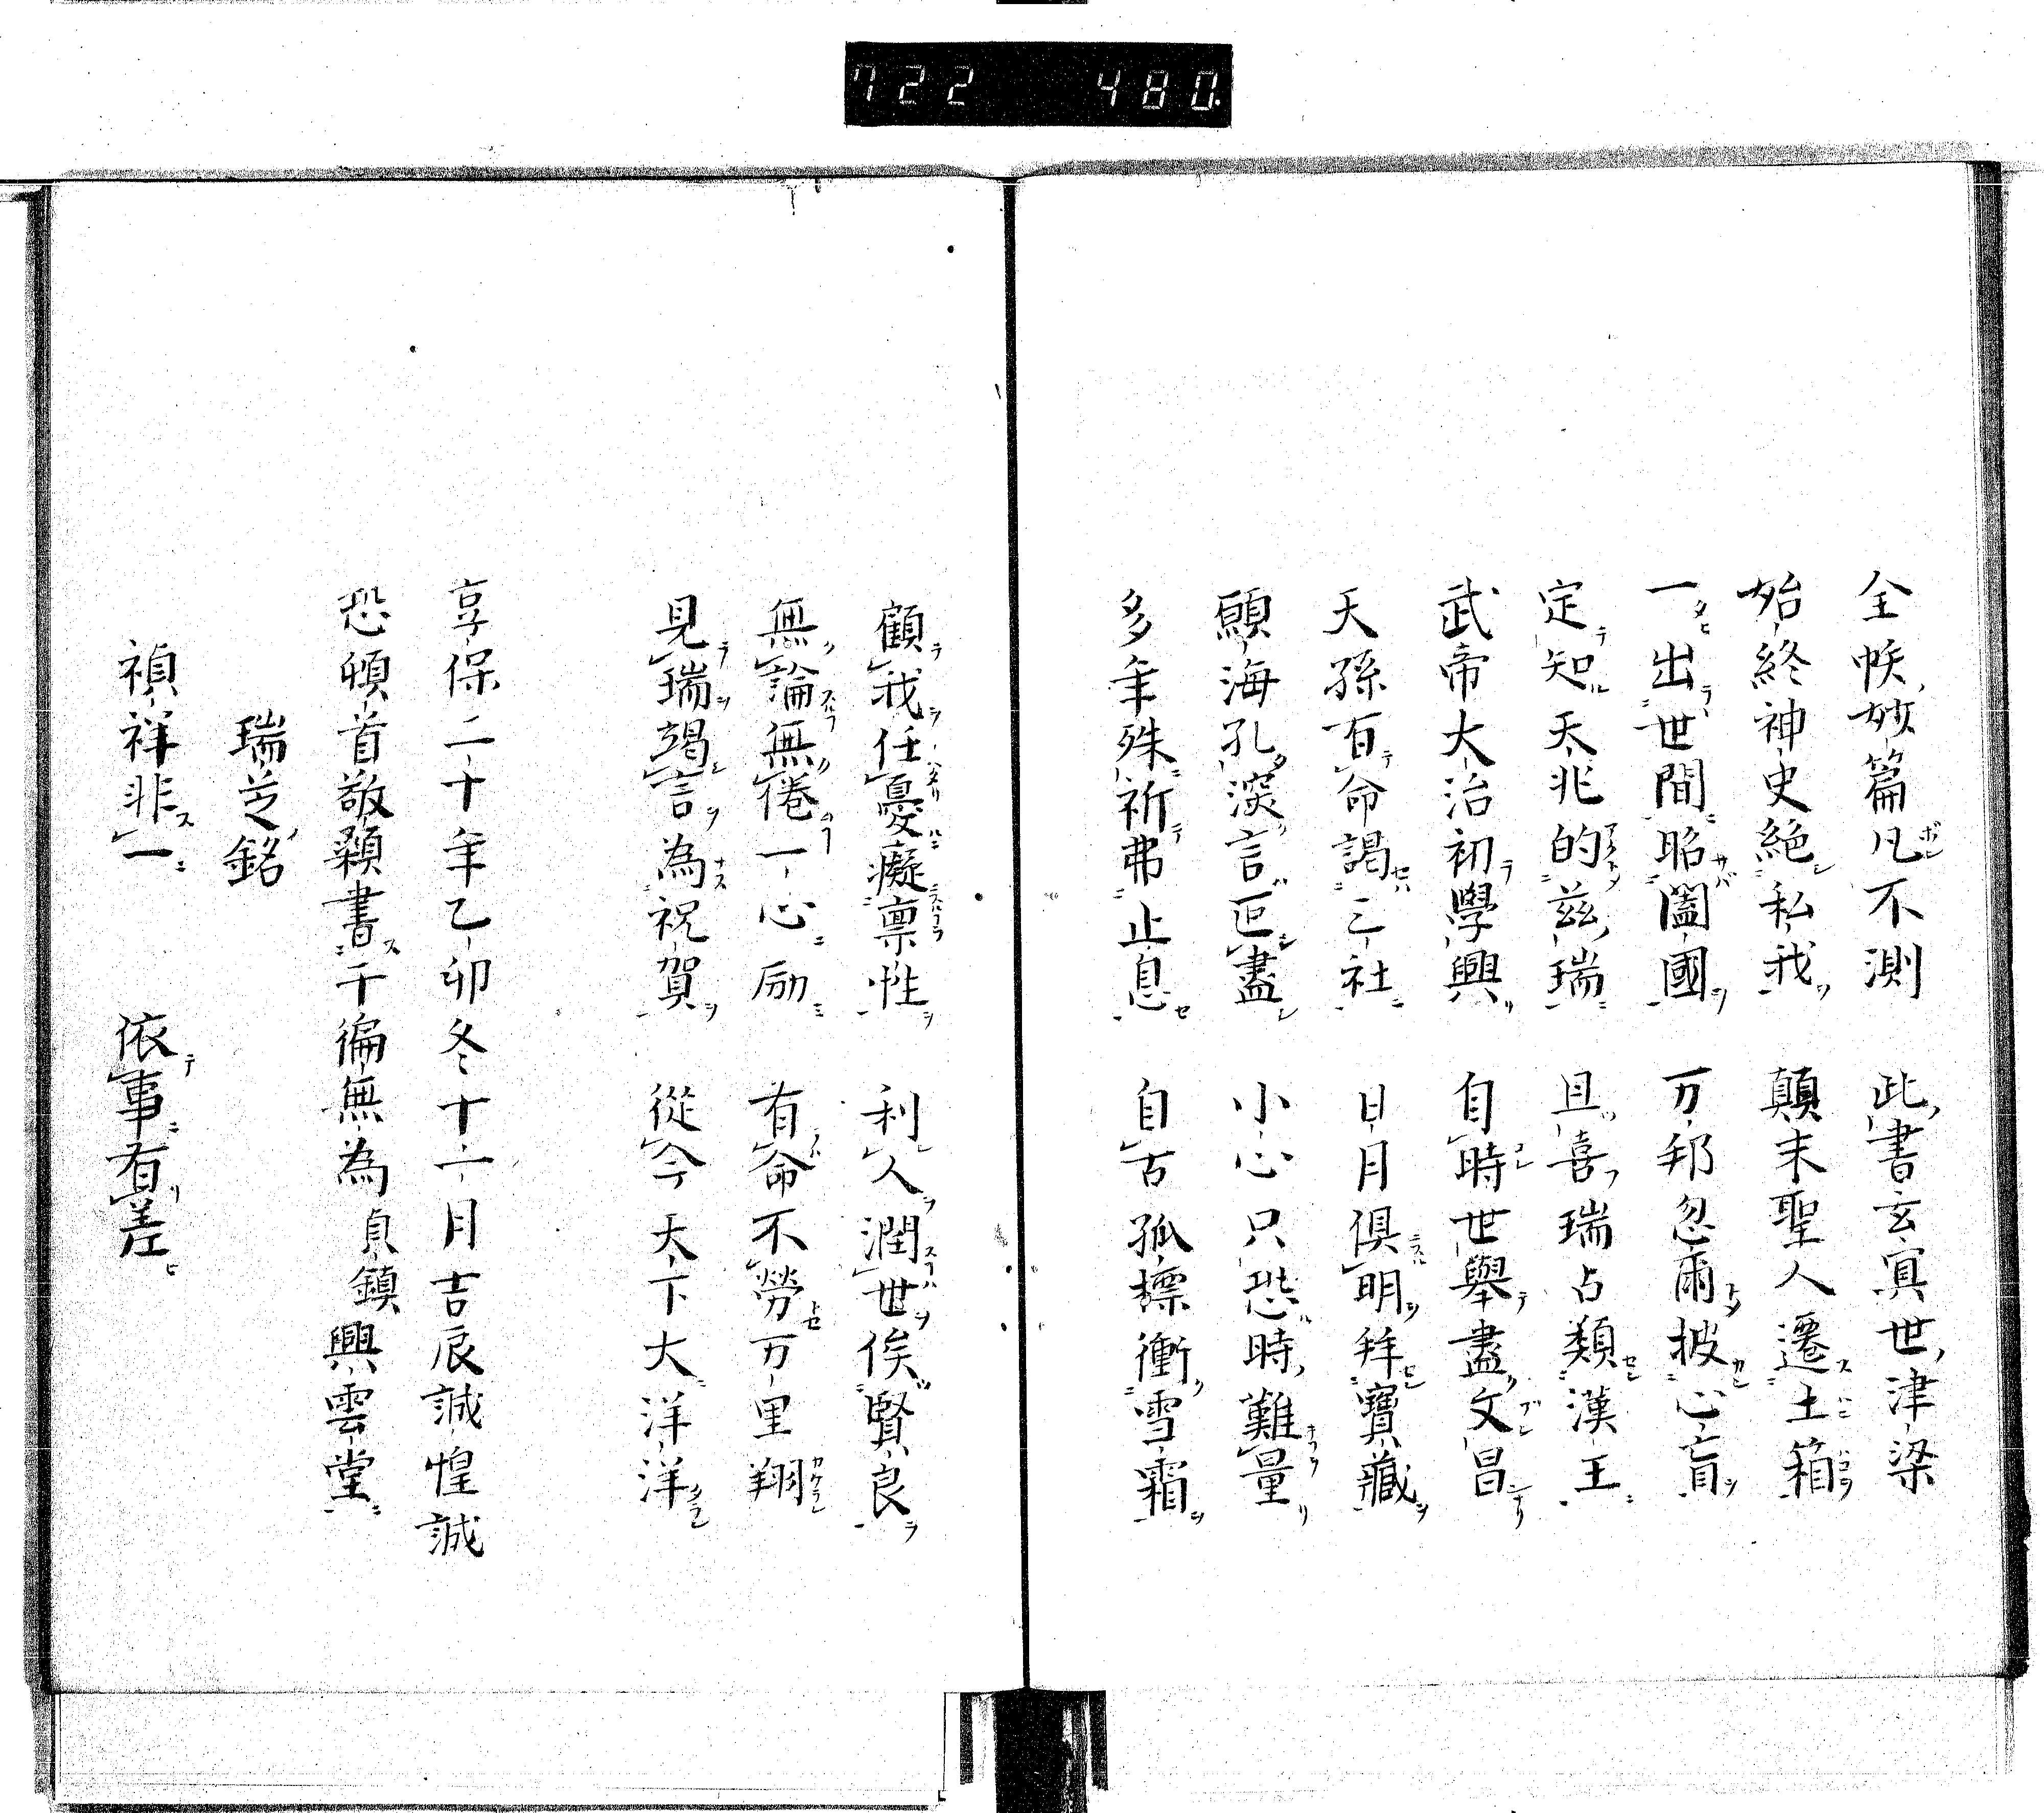 722 480
全帙妙篇凡不測 此書玄冥世津梁
始終神史絶私我 顛末聖人遷土箱
一出世間昭闔國 万邦忽爾披心盲
定知天兆的茲瑞 且喜瑞占類漢王
武帝大治初學興 自時世舉盡文昌
天孫有命謁三社 日月倶明拜寶藏
願海孔深言叵盡 小心只恐時難量
多年殊祈弗止息 自古孤標衝雪霜
顧我任憂癡禀性 利人潤世俟賢良
無論無倦一心励 有命不勞万里翔
見瑞竭言為祝賀 從今天下大洋洋
享保二十年乙卯冬十一月吉辰誠惶誠
恐頓首敬顙書于徧無為貞鎮興雲堂
瑞芝銘
禎祥非一 依事有差